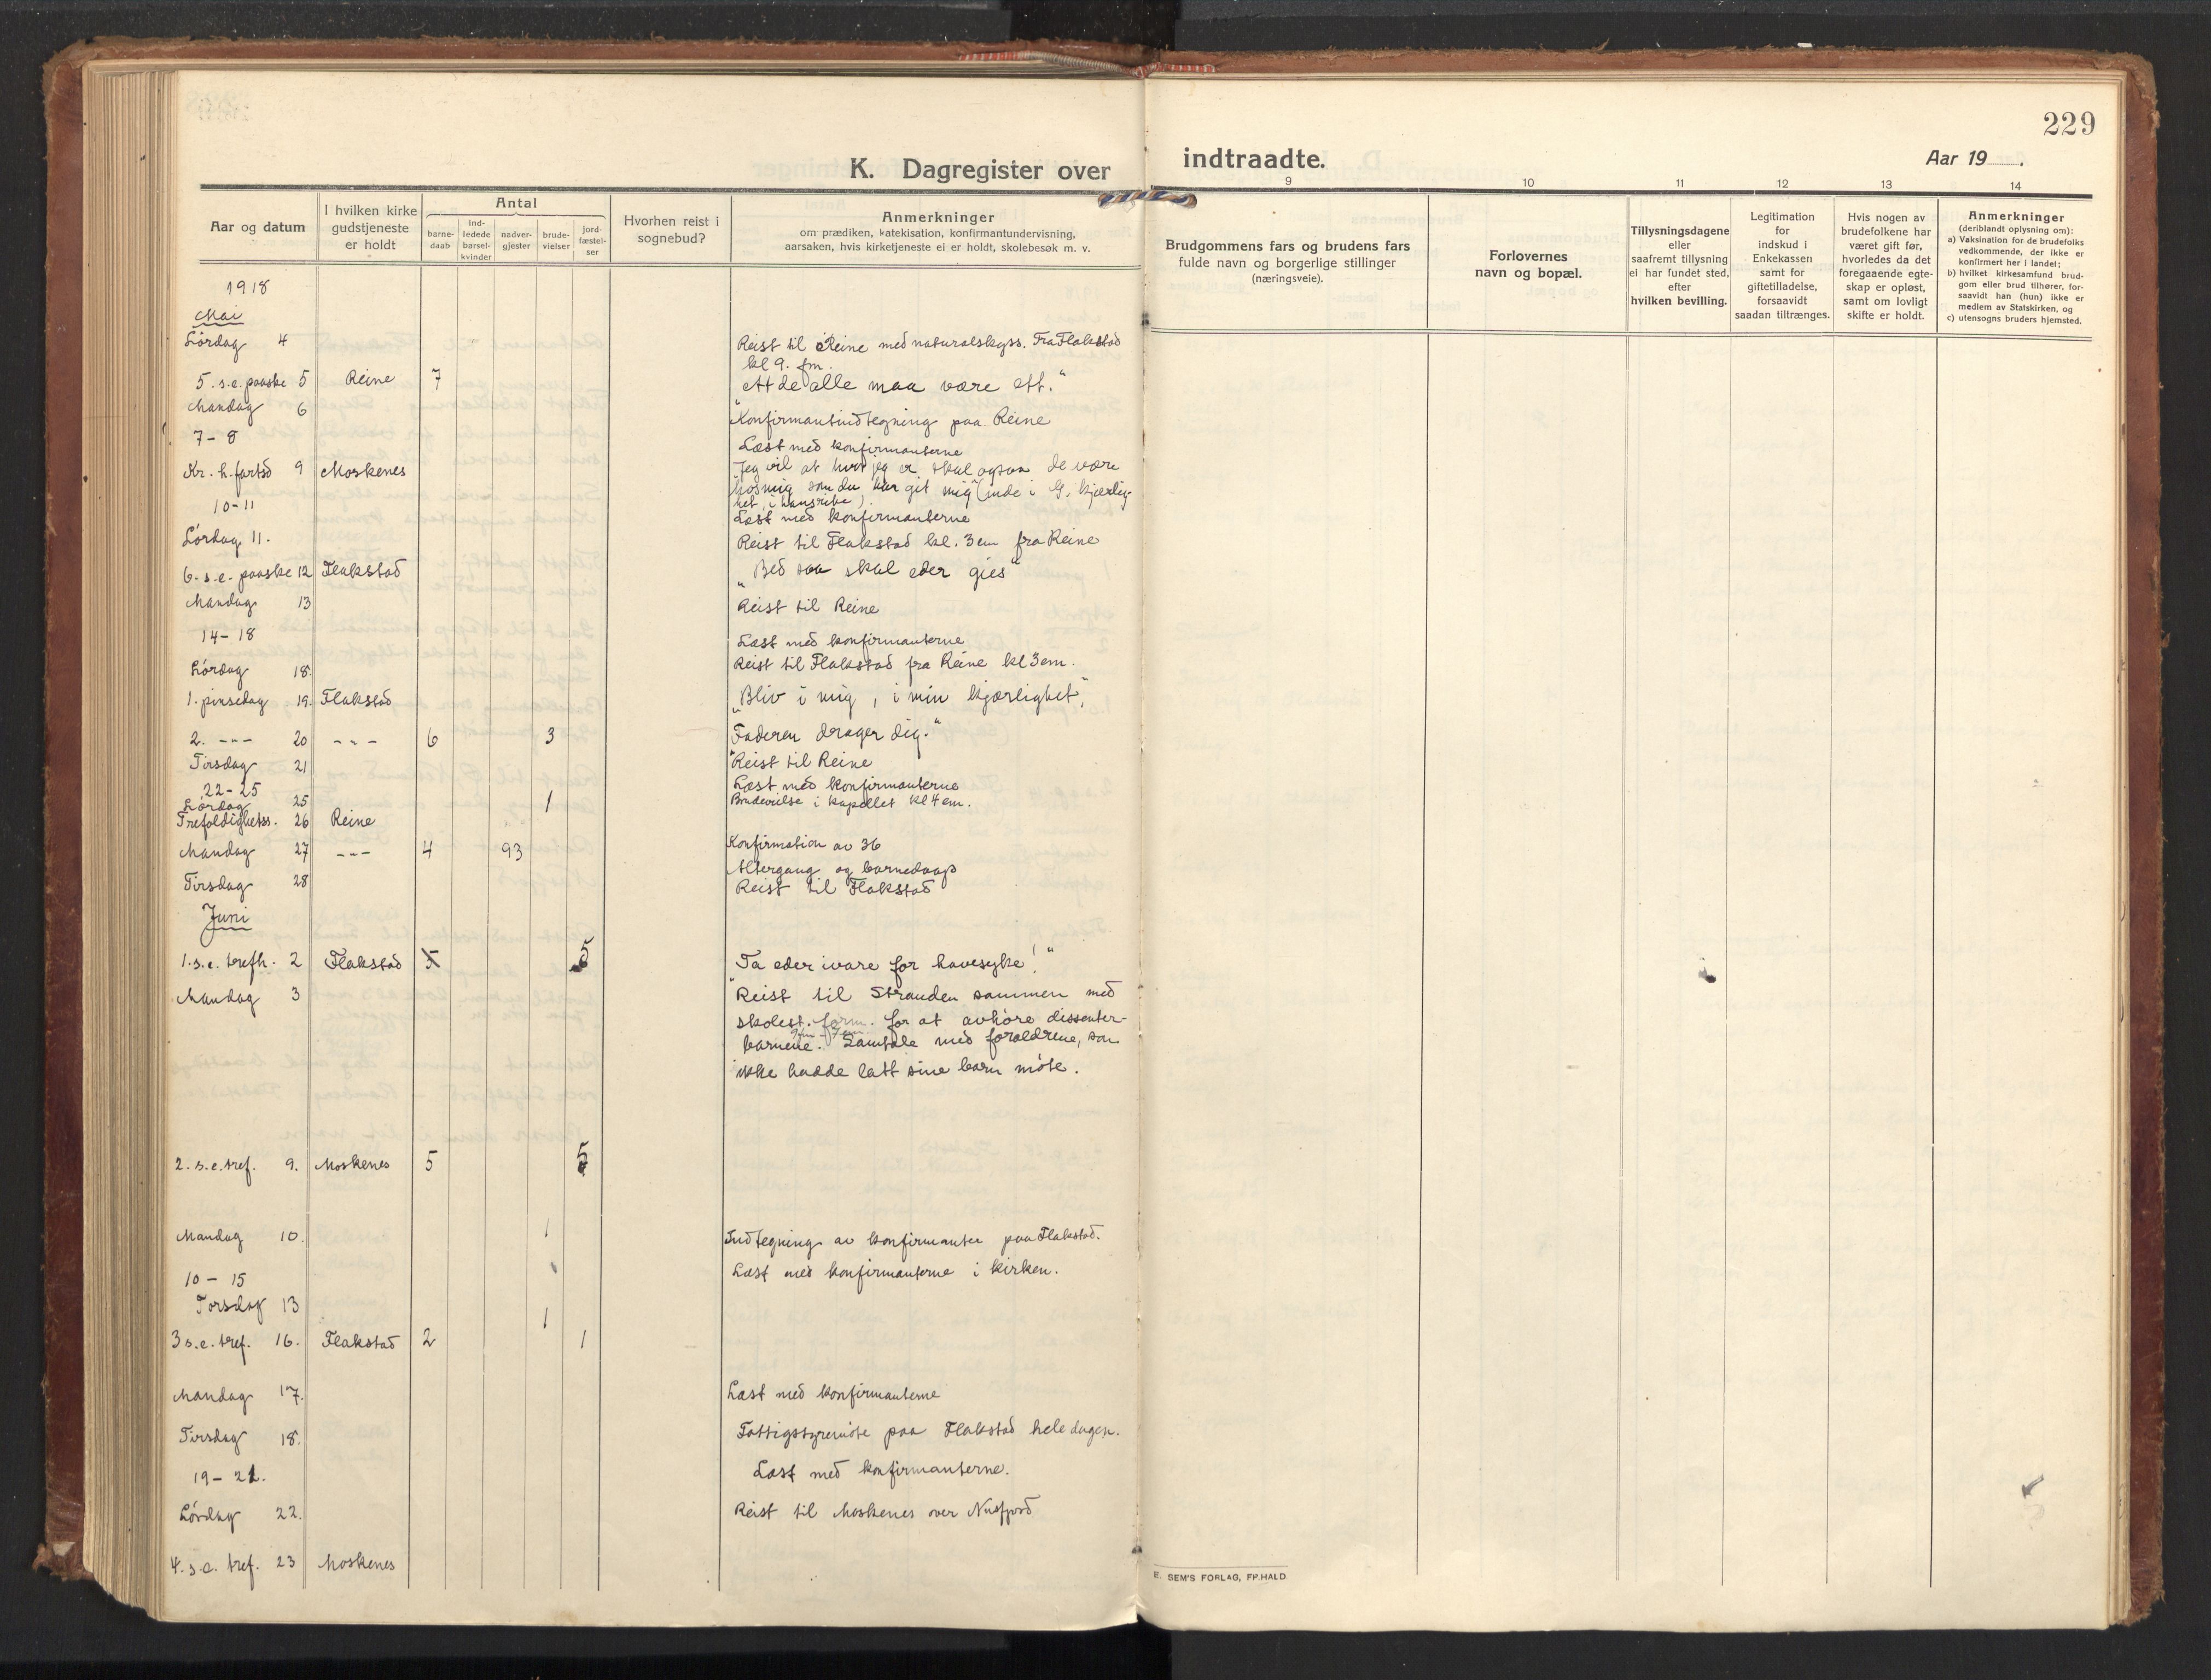 229
K. Dagregister over
indtraadte.
Aar 19 .
Aar og datum
I hvilken kirke
gudstjeneste
er holdt
Antal
barne-
daab
ind-
ledede
barsel-
kvinder
nadver-
gjester
brude-
vielser
jord-
fæstel-
ser
Hvorhen reist i
sognebud?
Anmerkninger
om prædiken, katekisation, konfirmantundervisning,
aarsaken, hvis kirketjeneste ei er holdt, skolebesøk m. v.
9
Brudgommens fars og brudens fars
fulde navn og borgerlige stillinger
(næringsveie).
10
Forlovernes
navn og bopæl.
11
Tillysningsdagene
eller
saafremt tillysning
ei har fundet sted,
efter
hvilken bevilling.
12
Legitimation
for
indskud i
Enkekassen
samt for
giftetilladelse,
forsaavidt
saadan tiltrænges.
13
Hvis nogen av
brudefolkene har
været gift før,
hvorledes da det
foregaaende egte-
skap er opløst,
samt om lovligt
skifte er holdt.
14
Anmerkninger
(deriblandt oplysning om):
a) Vaksination for de brudefolks
vedkommende, der ikke er
konfirmert her i landet;
b) hvilket kirkesamfund brud-
gom eller brud tilhører, for-
saavidt han (hun) ikke er
medlem av Statskirken, og
c) utensogns bruders hjemsted.
1918
Mai
Lørdag 4 Reist til Reine med naturalskyss. Fra Flakstad
kl 9. fm.
5. s.e. paaske 5 Reine 7 "At de alle maa være ett."
Mandag 6 Konfirmantindtegning paa Reine
7-8 Læst med konfirmanterne
Kr. h.fartsd 9 Moskenes "Jeg vil at hvor jeg er skal ogsaa de være
hos mig som du har git mig" (inde i G. kjærlig-
het, i hans rike).
10-11 Læst med konfirmanterne
Lørdag 11. Reist til Flakstad kl. 3 em fra Reine
6. s.e. paaske 12 Flakstad "Bed saa skal eder gies"
Mandag 13 Reist til Reine
14-18 Læst med konfirmanterne
Lørdag 18. Reist til Flakstad fra Reine kl 3 em.
1. pinsedag 19. Flakstad "Bliv i mig, i min kjærlighet",
2. -"- 20 -"- 6 3 "Faderen drager dig."
Tirsdag 21 Reist til Reine
22-25 Læst med konfirmanterne
Lørdag 25 1 Brudevielse i kapellet kl 4 em.
Trefoldighetss. 26 Reine Konfirmation av 36
Mandag 27 -"- 4 93 Altergang og barnedaap
Tirsdag 28 Reist til Flakstad
Juni
1. s.e. trefh. 2 Flakstad 5 5 "Ta eder ivare for havesyke!"
Mandag 3 Reist til Stranden sammen med
skolest. form. for at avhøre dissenter-
barnene. Samtale med forældrene, som
ikke hadde latt sine barn møte.
2. s.e. tref. 9. Moskenes 5 5
Mandag 10. 1 Indtegning av konfirmanter paa Flakstad.
10-15 Læst med konfirmanterne i kirken.
Torsdag 13 1
3 s.e. tref. 16. Flakstad 2 1
Mandag 17. Læst med konfirmanterne
Tirsdag 18. Fattigstyremøte paa Flakstad hele dagen.
19-21. Læst med konfirmanterne.
Lørdag 22. Reist til Moskenes over Nusfjord
4. s.e. tref. 23 Moskenes
E. SEM'S FORLAG, FR.HALD